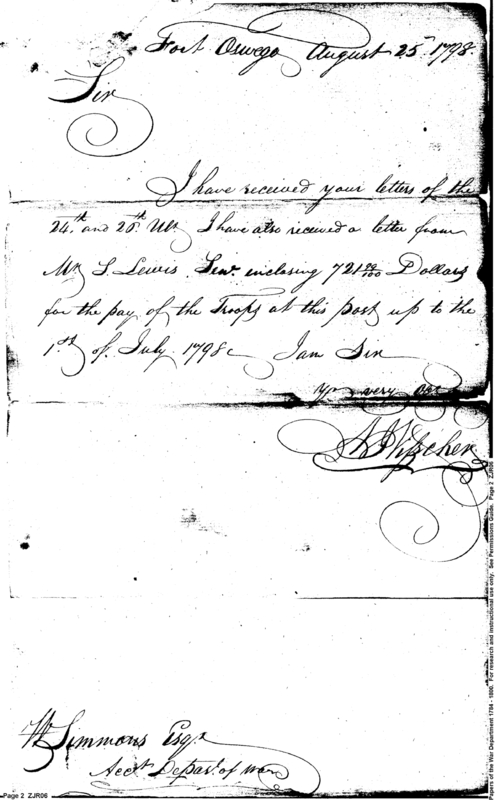 Fort Oswego August 25th. 1798.
Sir
I have received your letters of the
24th. and 26th. Ult. I have also received a letter from
Mr. S. Lewis, Senr. enclosing 721 99/100 Dollars
for the pay of the Troops at this post up to the
1st. of July. 1798. I am Sir
Yr. very
W Simmons Esqr.
Acct. Depart. of War
Page 2 ZJR06
Papers of the War Department 1784 - 1800. For research and instructional use only. See Permissions Guide. Page 2 ZJR06